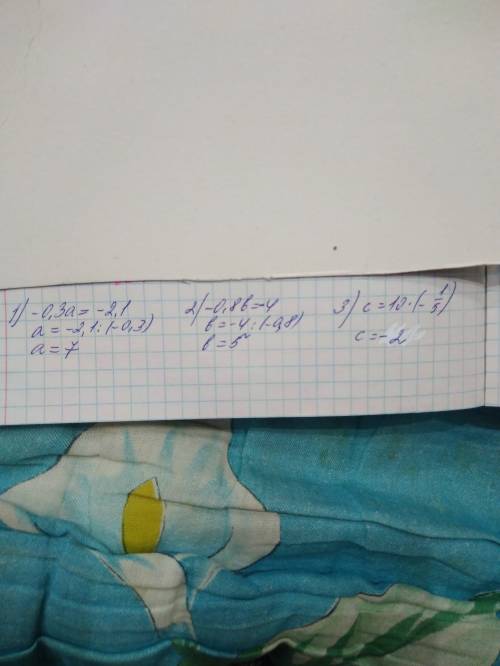 1) -0,3a = -2,1
a = -2,1 : (-0,3)
a = 7
2) -0,8b = -4
b = -4 : (-0,8)
b = 5
3) c = 10 · (- 1/5)
c = -2